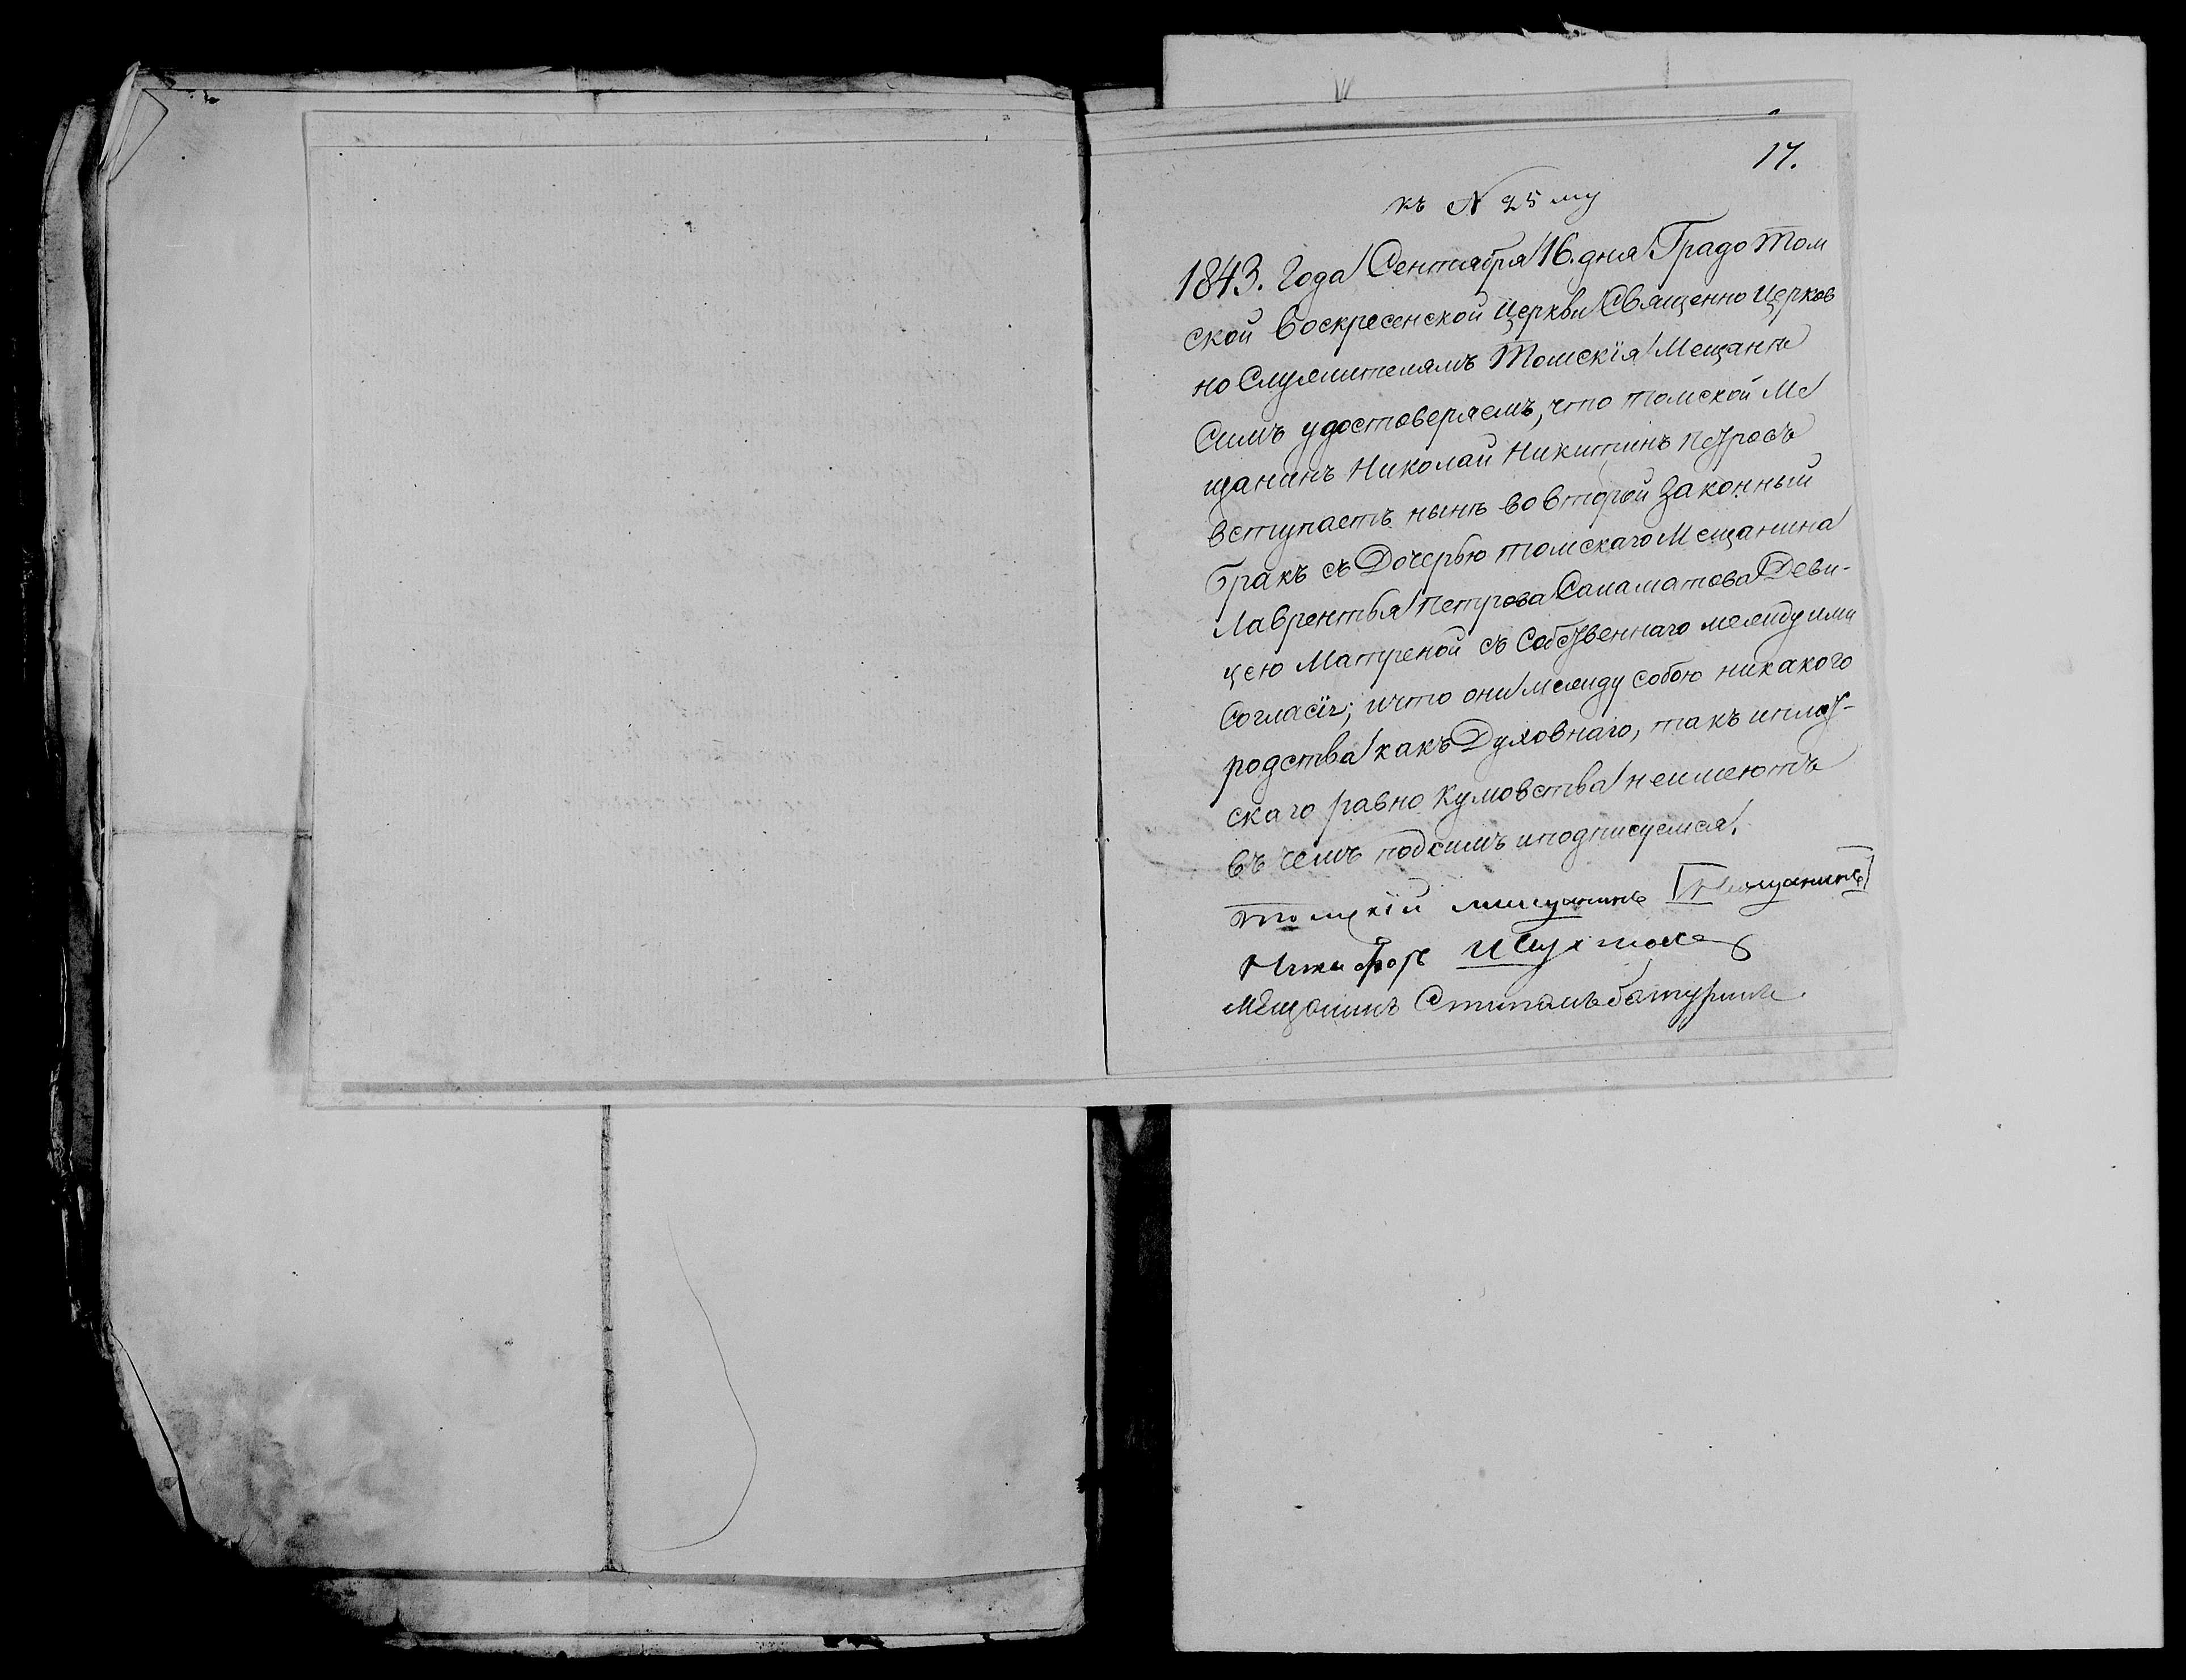 17.
къ № 25 му
1843. Года Сентября 16. дня Градо Том
ской Воскресенской Церкви Священно Церков
но Служителямъ Томскія Мещанѣ
Симъ удостоверяемъ, что томской Ме
щанинъ Николай Никитинъ Петровъ
вступаетъ нынѣ во второй Законный
бракъ съ Дочерью томскаго Мещанина
Лаврентья Петрова Саламатова Деви-
цею Матреной съ Собственнаго между ими
Согласія; и что они между собою никакого
родства какъ Духовнаго, такъ и плот-
скаго равно кумовства неимеютъ
въ чемъ подсимъ иподписуемся.
томскій мещанинъ
Никифоръ
мещанинъ Степанъ батуринъ.